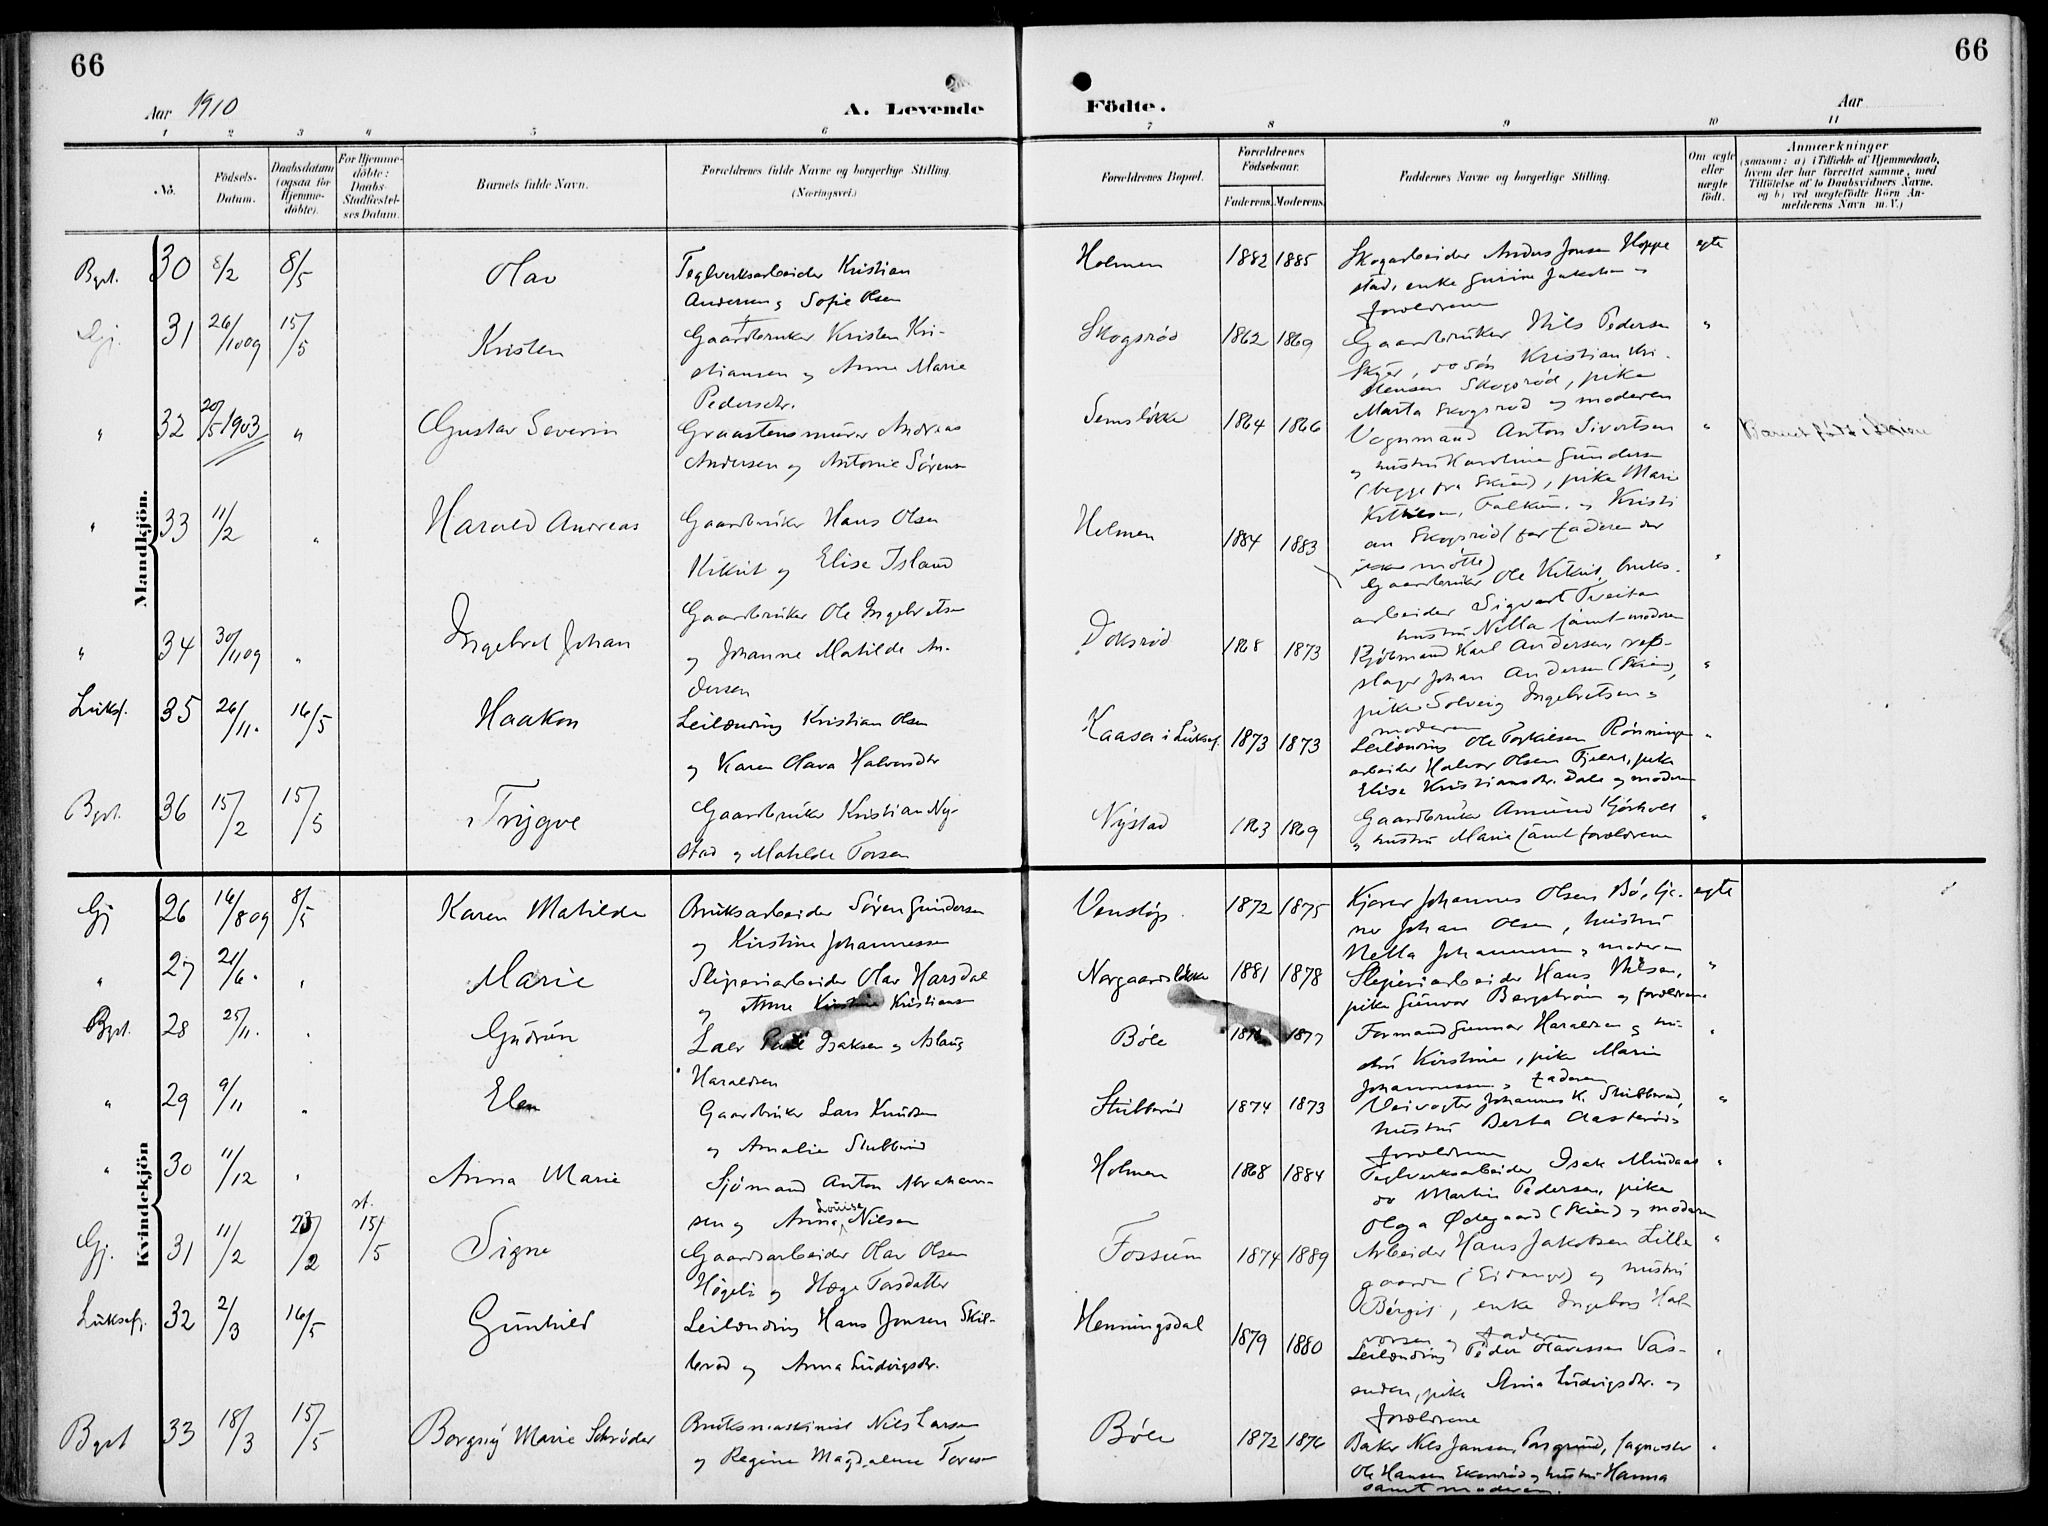 66
66
Aar 1910
A. Levende
Födte.
Aar
1 2 3 4 5 6 7 8 9 10 11
No.
Födsels-Datum.
Daabsdatum (ogsaa for Hjemme-döbte).
For Hjemme-döbte: Daabs-Stadfæstel-ses Datum.
Barnets fulde Navn.
Forældrenes fulde Navne og borgerlige Stilling.
(Næringsvei.)
Forældrenes Bopæl.
Forældrenes Födselsaar.
Faderens. Moderens.
Faddernes Navne og borgerlige Stilling.
Om ægte eller uægte födt.
Anmærkninger
(saasom: a) i Tilfælde af Hjemmedaab, hvem der har forrettet samme, med Tilföielse af to Daabsvidners Navne. og b) ved uægtefödte Börn Anmelderens Navn m. V.)
Mandkjön.
Bgst. 30 8/2 8/5 Olav
Teglverksarbeider Kristian
Andersen og Sofie Olsen
Holmen 1882 1885
Skogarbeider Anders Jonsen Hoppe
stad, enke Gurine Jakobsen og
forældrene
egte
Gj. 31 26/10 09 15/5 Kristen
Gaardbruker Kristen Kri-
stiansen og Anne Marie
Pedersdr.
Skogsrød 1862 1869
Gaardbruker Nils Pedersen
Skyer, do søn Kristian Kri-
stensen Skogsrød, pike
Marta Skogsrød og moderen
"
" 32 20/5 1903 " Gustav Severin
Graastensmurer Andreas
Andersen og Antonie Sørensen
Semsløkka 1864 1866
Vognmand Anton Sivertsen
og hustru Karoline Gundersen
(begge fra Skien), pike Marie
Kittilsen, Falkum, og Kristi
an Skogsrød (for faderen der
ikke møtte)
" Barnet født i Skien
" 33 11/2 " Harald Andreas
Gaardbruker Hans Olsen
Kikut og Elise Island
Holmen 1884 1883
Gaardbruker Ole Kikut, bruks-
arbeider Sigvart Tveitan
hustru Nella samt moderen
"
" 34 30/11 09 " Ingebret Johan
Gaardbruker Ole Ingebretsen
og Johanne Matilde An-
dersen
Doksrød 1868 1873
Kjøbmand Karl Andersen, rep-
slager Johan Andersen (Skien),
pike Solveig Ingebretsen og
moderen
"
Luksf. 35 26/11. 16/5 Haakon
Leilænding Kristian Olsen
og Karen Olava Halvorsdtr
Kaasa i Luksef. 1873 1873
Leilænding Ole Torkilsen Rønningen
arbeider Halvor Olsen Fjeld, pike
Elise Kristiansdr. Dale og moderen
"
Bgst. 36 15/2 15/5 Trygve
Gaardbruker Kristian Ny-
stad og Matilde Torsen
Nystad 1863 1869
Gaardbruker Amund Kjørholt
og hustru Marie samt forældrene
"
Kvindekjön
Gj 26 16/8 09 8/5 Karen Matilde
Bruksarbeider Søren Gundersen
og Kirstine Johannessen
Venstøp. 1872 1875
Kjører Johannes Olsen Bø, tje-
ner Johan Olsen, hustru
Nella Johannessen og moderen
egte
" 27 21/6. " Marie
Sliperiarbeider Olav Harsdal
og Anne Kirstine Kristiansen
Norgaardsløkka 1881 1878
Sliperiarbeider Hans Nilsen,
pike Gunvor Bergstrøm og forældrene
"
Bgst. 28 25/11. " Gudrun
Laer Paul Isaksen og Aslaug
Haraldsen
Bøle 1877
Formand Gunnar Haraldsen og hu-
stru Kirstine, pike Marie
Johannessen og faderen
"
" 29 9/11 " Elen
Gaardbruker Lars Knudsen
og Amalie Stubberød
Stubberød 1874 1873
Veivogter Johannes K. Stubberød,
hustru Berta Aasterød og
forældrene
"
" 30 11/12 " Anna Marie
Sjømand Anton Abraham-
sen og Anna Louise Nilsen
Holmen 1868 1884
Teglverksarbeider Isak
do Martin Pedersen, pike
Olga Ødegaard (Skien) og moderen
"
Gj. 31 11/2 23/2 st. 15/5 Signe
Gaardsarbeider Olav Olsen
Høgeli og Hæge Torsdatter
Fossum 1874 1889
Arbeider Hans Jakobsen Lille
gaarden (Eidanger) og hustru
Bergit, enke Ingeborg Hal-
vorsen og faderen
"
Luksef. 32 2/3 16/5 Gunhild
Leilænding Hans Jonsen Skil-
brød og Anna Ludvigsdr.
Henningsdal 1879 1880
Leilænding Peder Olavessen Vas-
enden, pike Anna Ludvigsdr. og
forældrene
"
Bgst 33 18/3 15/5 Borgny Marie Schrøder
Bruksmaskinist Nils Larsen
og Regine Magdalene Toresen
Bøle 1872 1876
Baker Nils Jansen, Porsgrund, sagmester
Ole Hansen Ekornrød og hustru Hanna
samt moderen.
"